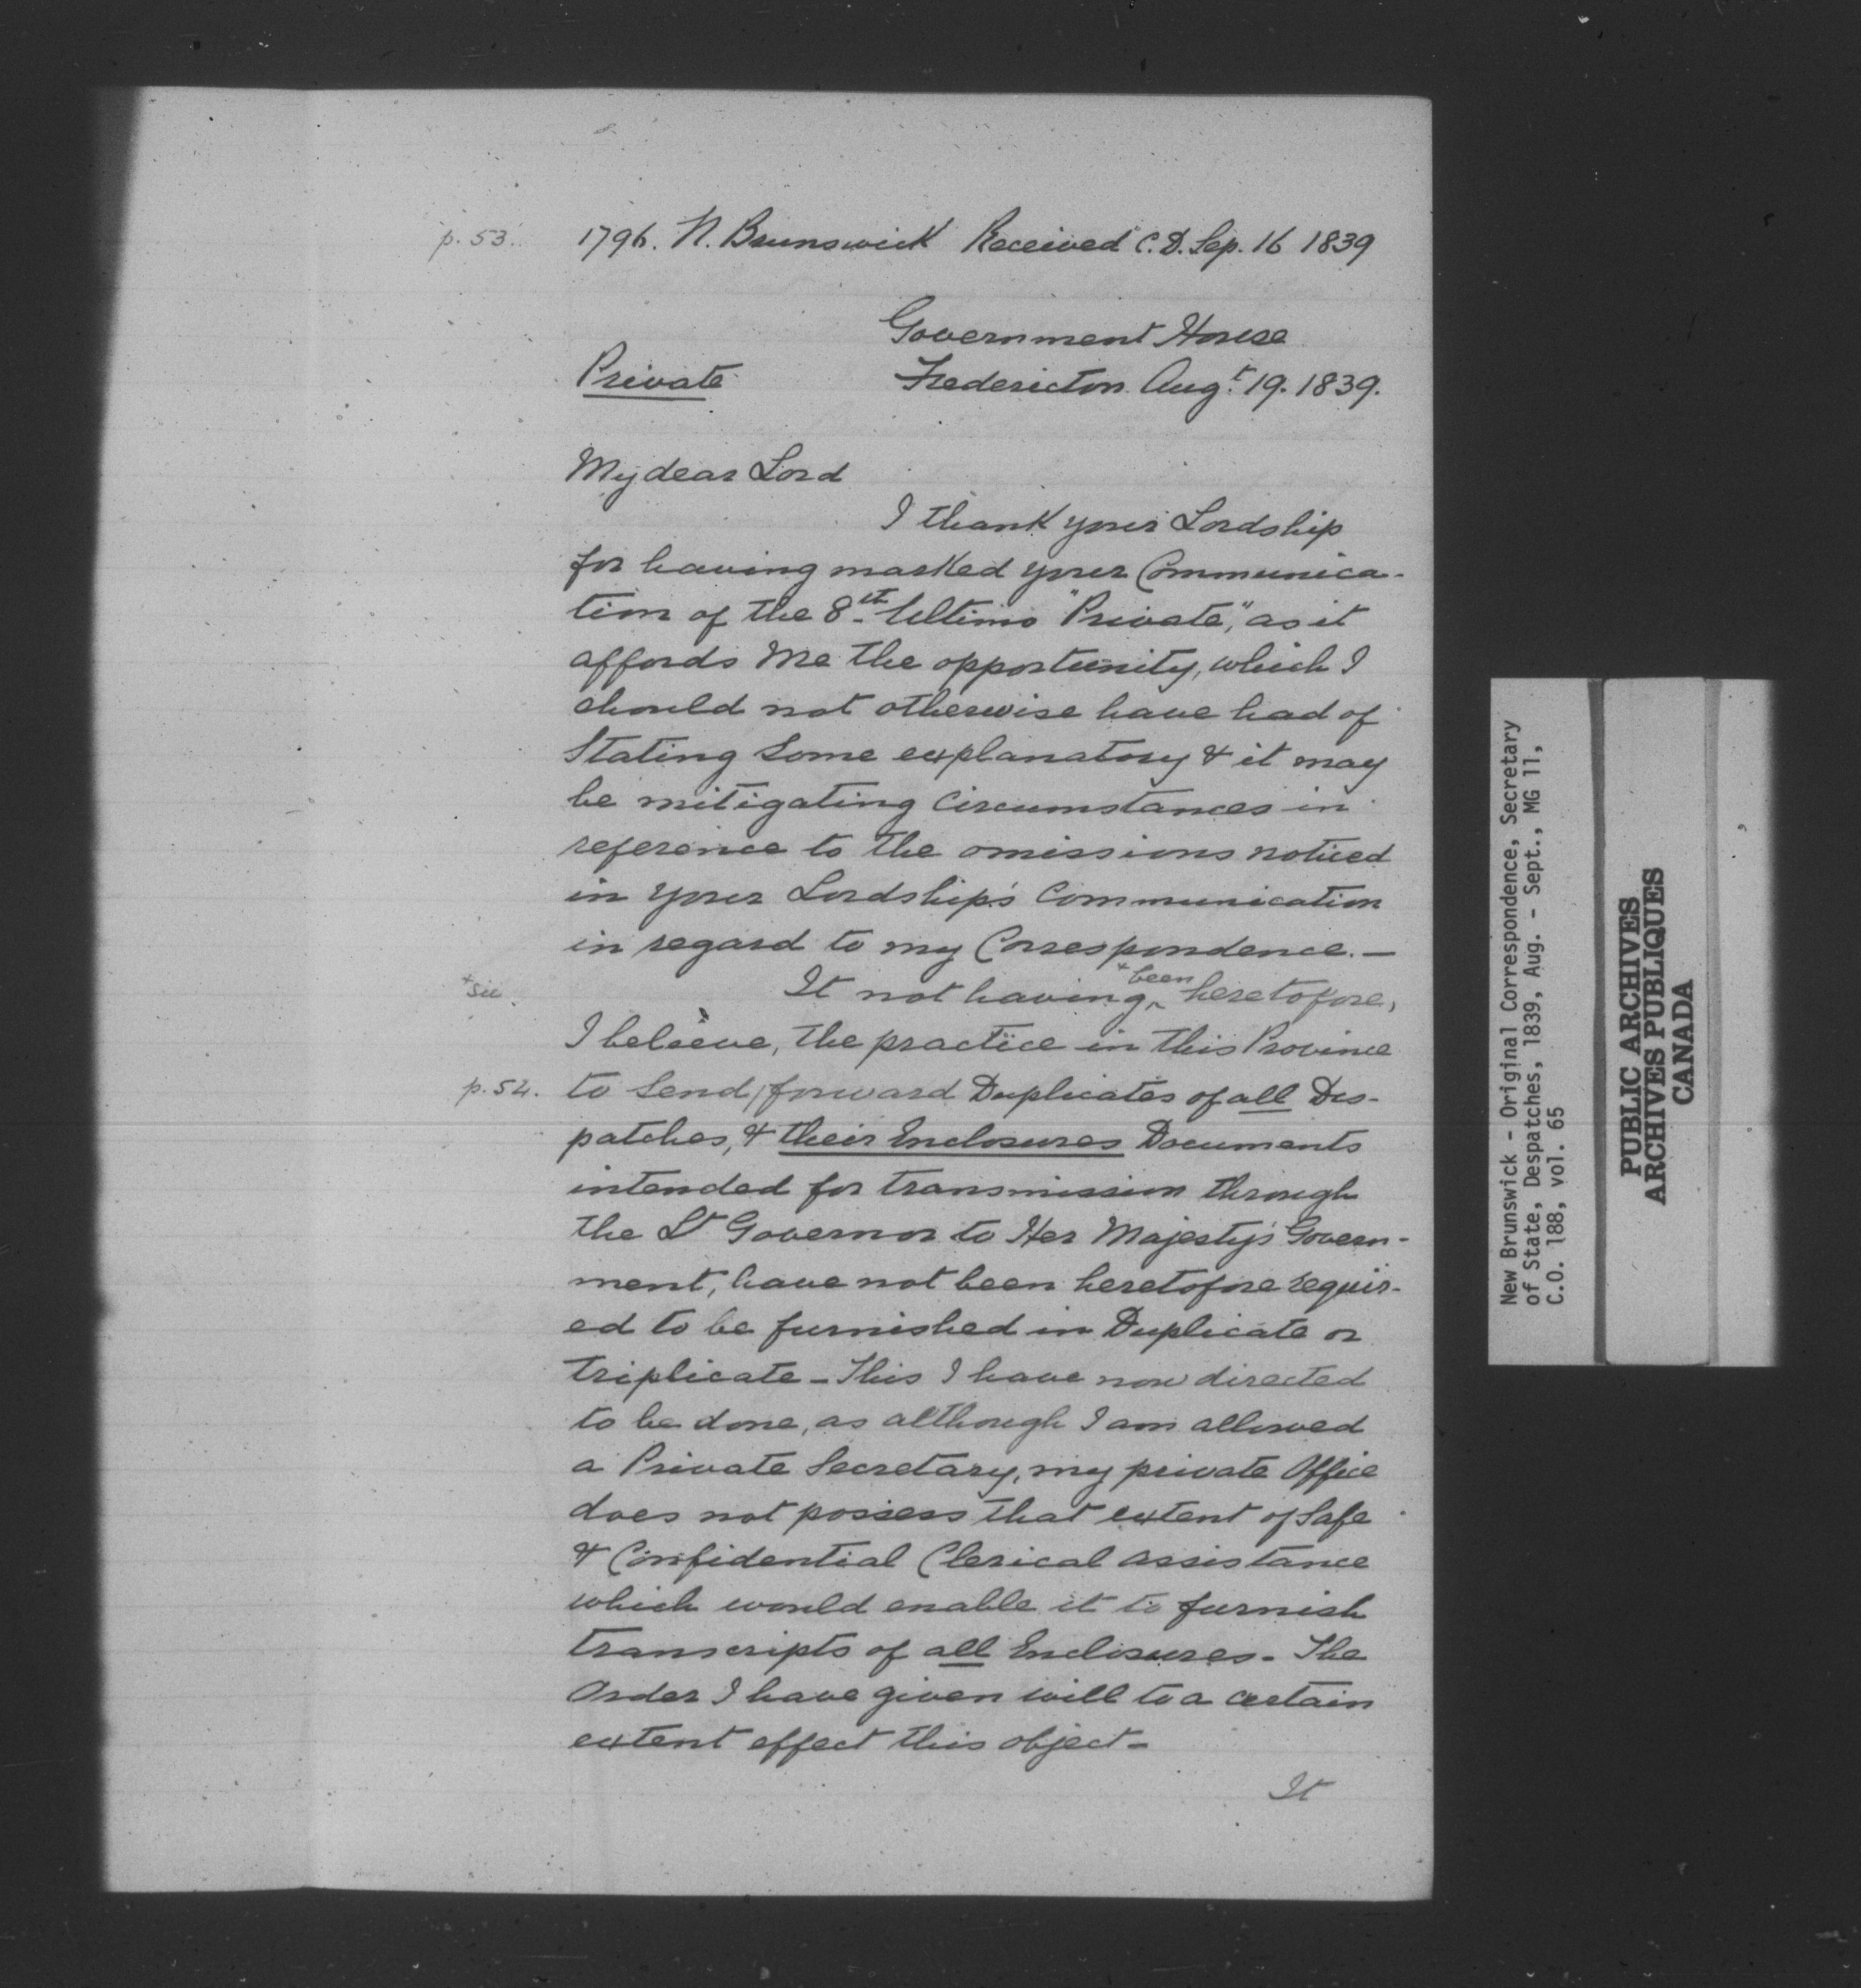 p. 53. 1796. N. Brunswick Received C.D. Sep. 16 1839
Government House
Private Fredericton Augt. 19. 1839.
My dear Lord
I thank your Lordship
for having marked your Communica-
tion of the 8th. Ultimo "Private", as it
affords Me the opportunity, which I
should not otherwise have had of
Stating Some explanatory & it may
be mitigating Circumstances in
reference to the omissions noticed
in your Lordship's Communication
in regard to my Correspondence. —
+ sic It not having + been heretofore,
I beleeve, the practice in this Province
p. 54. to Send / forward Duplicates of all Des-
patches, & their Enclosures Documents
intended for transmission through
the Lt Governor to Her Majesty's Govern-
ment, have not been heretofore requir-
ed to be furnished in Duplicate or
Triplicate – This I have now directed
to be done, as although I am allowed
a Private Secretary, my private Office
does not possess that extent of Safe
& Confidential Clerical assistance
which would enable it to furnish
transcripts of all Enclosures – The
Order I have given will to a certain
extent effect this object –
It
New Brunswick - Original Correspondence, Secretary
of State, Despatches, 1839, Aug. - Sept., MG 11,
C.O. 188, vol. 65
PUBLIC ARCHIVES
ARCHIVES PUBLIQUES
CANADA